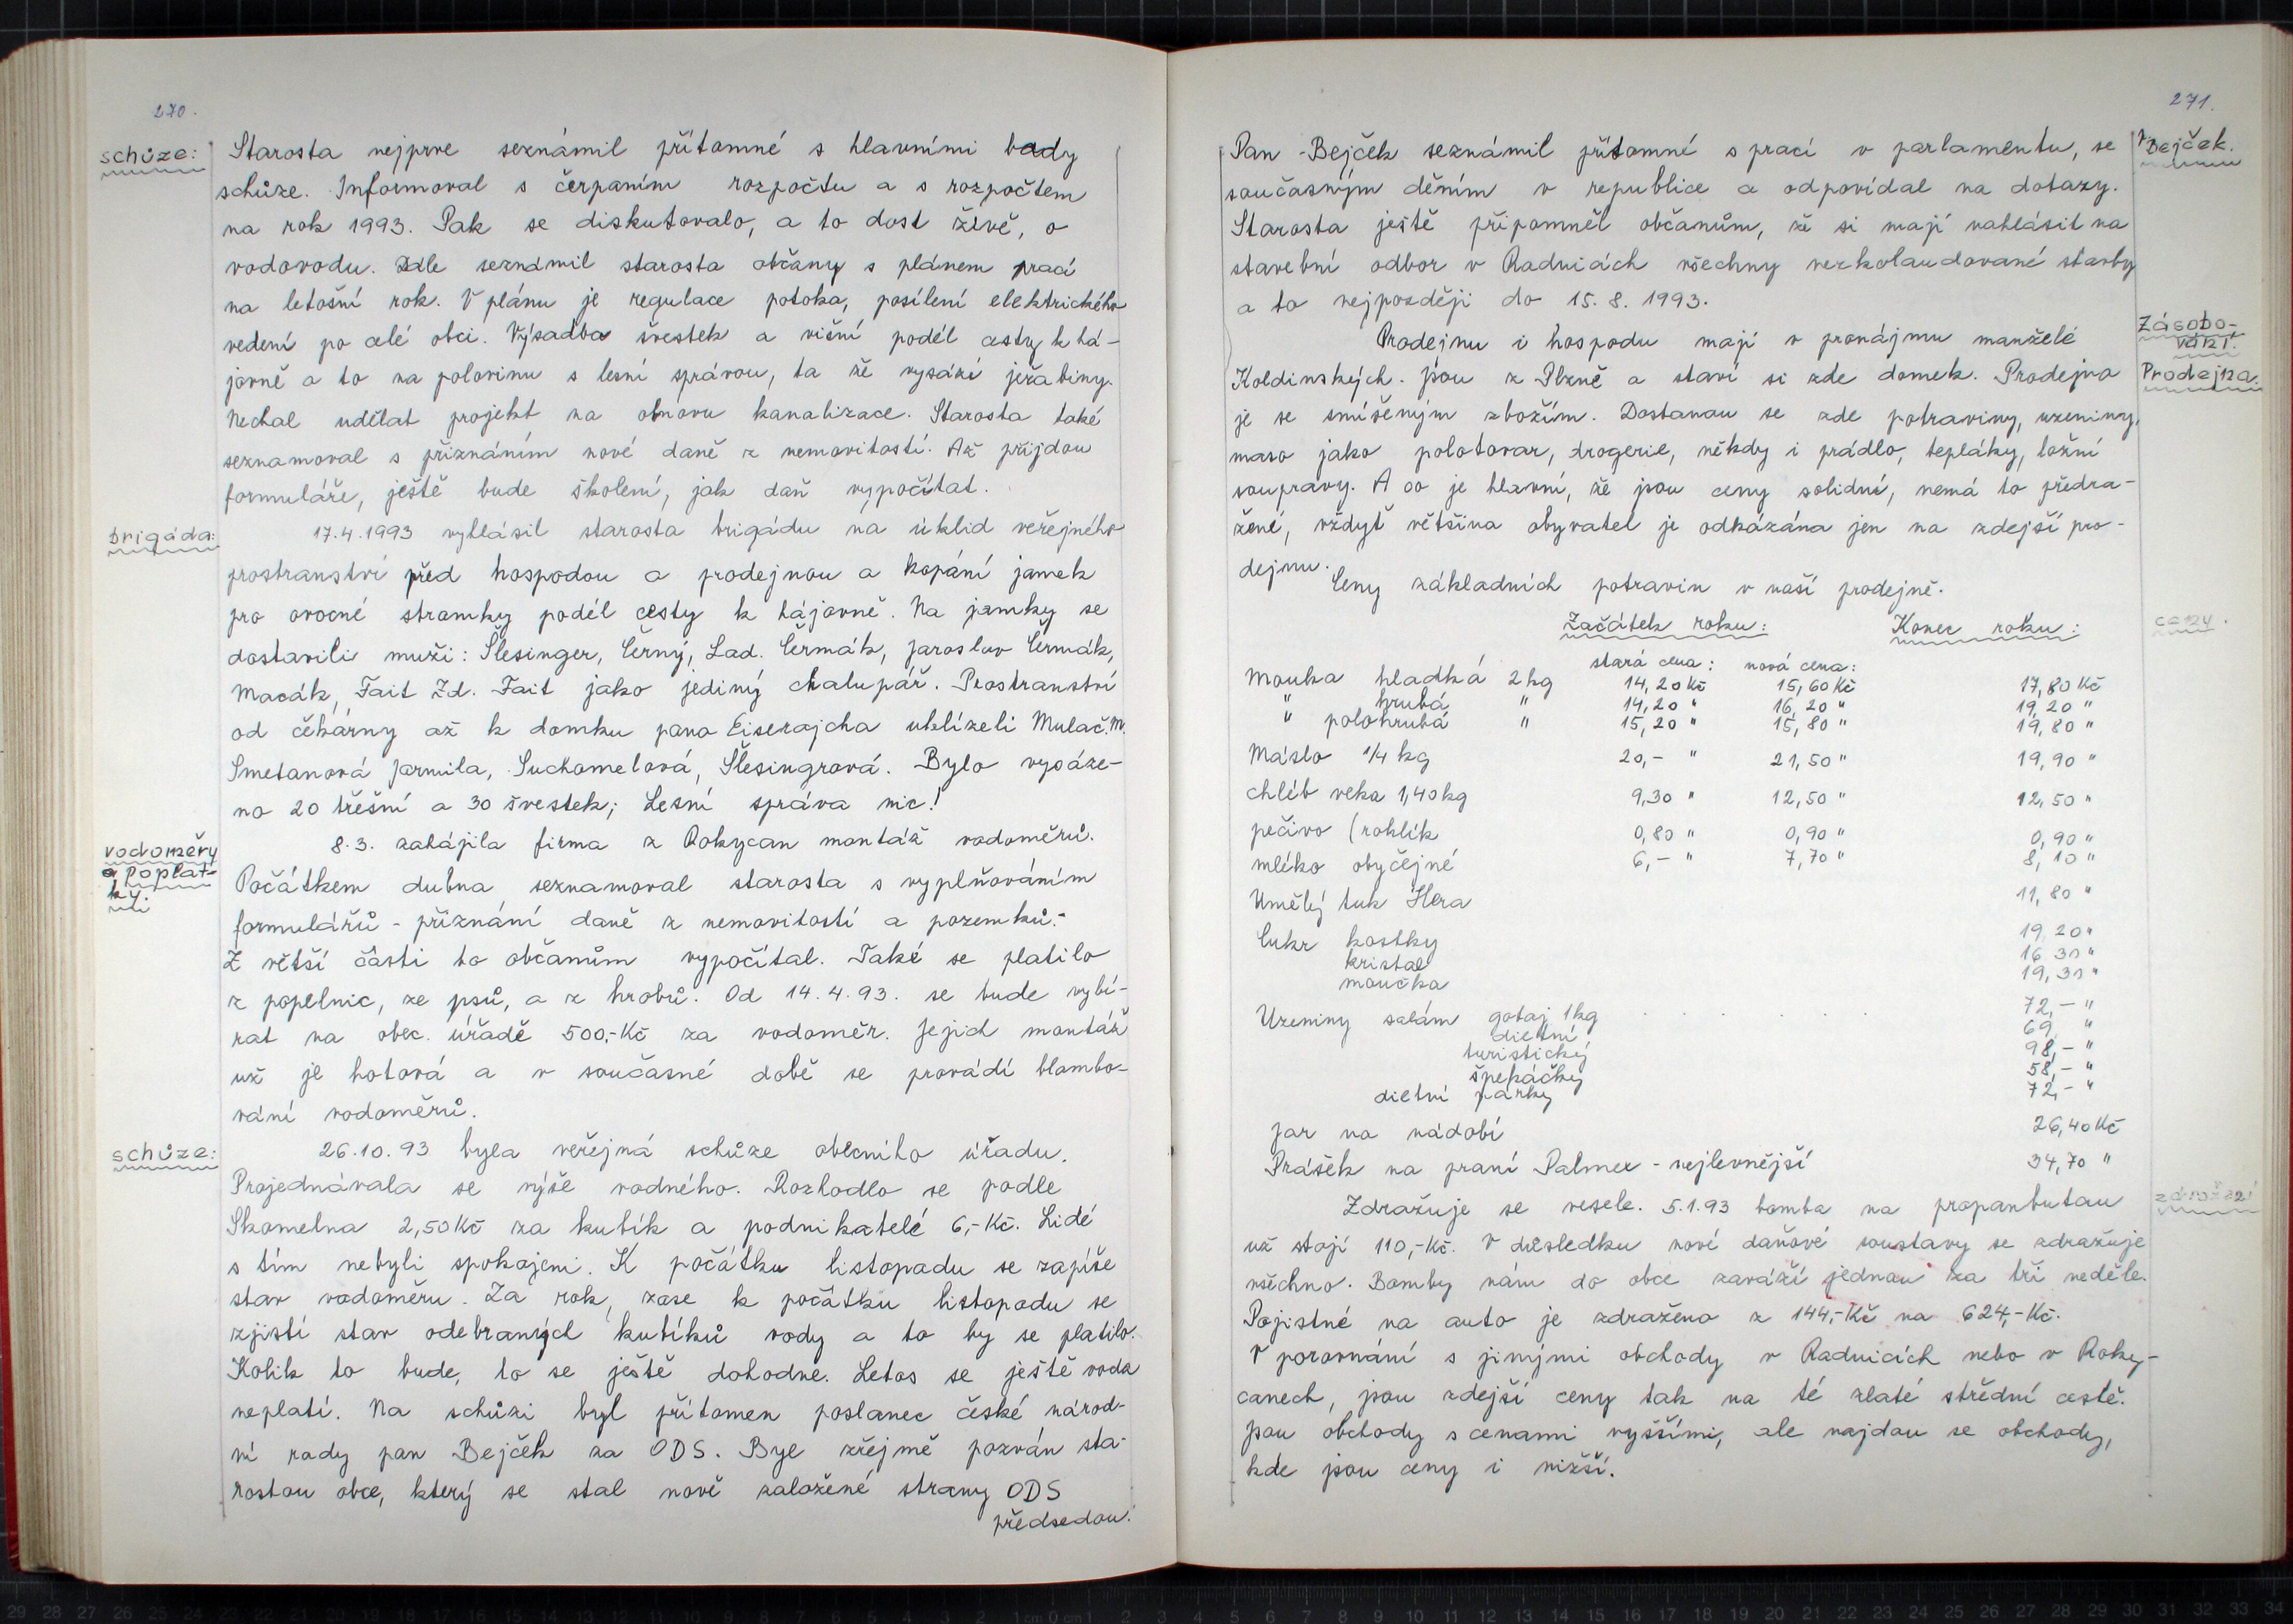 270.
schůze:
Starosta nejprve seznámil přítomné s hlavními body
schůze. Informoval s čerpaním rozpočtu a s rozpočtem
na rok 1993. Pak se diskutovalo, a to dost živě, o
vodovodu. Dále seznámil starosta občany s plánem prací
na letošní rok. V plánu je regulace potoka, posílení elektrického
vedení po celé obci. Výsadba švestek a višní podél cesty k há-
jovně a to na polovinu s lesní správou, ta že vysází jeřabiny.
Nechal udělat projekt na obnovu kanalizace. Starosta také
seznamoval s přiznáním nové daně z nemovitostí. Až přijdou
formuláře, ještě bude školení, jak daň vypočítat.
brigáda:
17.4.1993 vyhlásil starosta brigádu na úklid veřejného
prostranství před hospodou a prodejnou a kopání jamek
pro ovocné stromky podél cesty k hájovně. Na jamky se
dostavili muži: Šlesinger, Černý, Lad. Čermák, Jaroslav Čermák,
Macák, Fait Zd. Fait jako jediný chalupář. Prostranství
od čekárny až k domku pana Eiserajcha uklízeli Mulač. M.
Smetanová Jarmila, Suchomelová, Šlesingrová. Bylo vysáze-
no 20 třešní a 30 švestek; Lesní správa nic!
vodoměry
a poplat-
ky.
8.3. zahájila firma z Rokycan montáž vodoměrů.
Počátkem dubna seznamoval starosta s vyplňováním
formulářů - přiznání daně z nemovitostí a pozemků.-
Z větší části to občanům vypočítal. Také se platilo
z popelnic, ze psů, a z hrobů. Od 14.4.93. se bude vybí-
rat na obec. úřadě 500,-Kč za vodoměr. Jejich montáž
už je hotová a v současné době se provádí blombo-
vání vodoměrů.
schůze:
26.10.93 byla veřejná schůze obecního úřadu.
Projednávala se výše vodného. Rozhodlo se podle
Skomelna 2,50Kč za kubík a podnikatelé 6,-Kč. Lidé
s tím nebyli spokojeni. K počátku listopadu se zapíše
stav vodoměru. Za rok, zase k počátku listopadu se
zjistí stav odebraných kubíků vody a to by se platilo.
Kolik to bude, to se ještě dohodne. Letos se ještě voda
neplatí. Na schůzi byl přítomen poslanec české národ-
ní rady pan Bejček za ODS. Byl zřejmě pozván sta-
rostou obce, který se stal nově založené strany ODS
předsedou.
271.
Pan Bejček seznámil přítomné s prací v parlamentu, se
p. Bejček.
současným děním v republice a odpovídal na dotazy.
Starosta ještě připomněl občanům, že si mají nahlásit na
stavební odbor v Radnicích všechny nezkolaudované stavby
a to nejpozději do 15.8.1993.
Zásobo-
vání.
Prodejna.
Prodejnu i hospodu mají v pronájmu manželé
Koldinských. Jsou z Plzně a staví si zde domek. Prodejna
je se smíšeným zbožím. Dostanou se zde potraviny, uzeniny,
maso jako polotovar, drogerie, někdy i prádlo, tepláky, ložní
soupravy. A co je hlavní, že jsou ceny solidní, nemá to předra-
žené, vždyť většina obyvatel je odkázána jen na zdejší pro-
dejnu.
Ceny základních potravin v naší prodejně.
ceny.
Začátek roku: Konec roku:
stará cena: nová cena:
Mouka hladká 2kg 14,20Kč 15,60Kč 17,80Kč
" hrubá " 14,20 " 16,20 " 19,20 "
" polohrubá " 15,20 " 15,80 " 19,80 "
Máslo 1/4 kg 20,- " 21,50 " 19,90 "
chléb veka 1,40kg 9,30 " 12,50 " 12,50 "
pečivo (rohlík 0,80 " 0,90 " 0,90 "
mléko obyčejné 6,- " 7,70 " 8,10 "
Umělý tuk Hera 11,80 "
Cukr kostky 19,20 "
kristal 16,30 "
moučka 19,30 "
Uzeniny salám gotaj 1kg . . . . . . 72,- "
dietní 69, "
turistický 98,- "
špekáčky 58,- "
dietní párky 72,- "
Jar na nádobí 26,40Kč
Prášek na praní Palmex - nejlevnější 34,70 "
zdražení
Zdražuje se vesele. 5.1.93 bomba na propanbutan
už stojí 110,-Kč. V důsledku nové daňové soustavy se zdražuje
všechno. Bomby nám do obce zaváží jednou za tři neděle.
Pojistné na auto je zdraženo z 144,-Kč na 624,-Kč.
V porovnání s jinými obchody v Radnicích nebo v Roky-
canech, jsou zdejší ceny tak na té zlaté střední cestě.
Jsou obchody s cenami vyššími, ale najdou se obchody,
kde jsou ceny i nižší.